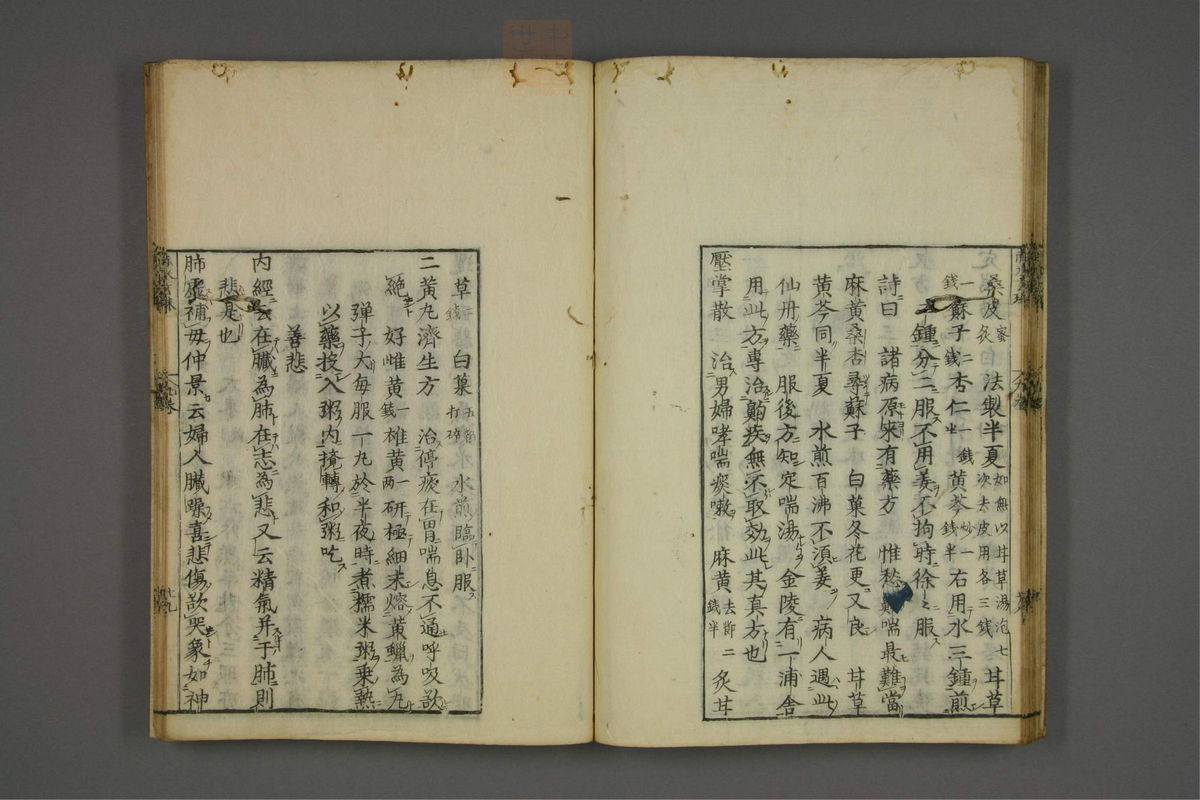 桑皮蜜炙 法製半夏如無以甘草湯泡七次去皮用各三錢 甘草
一錢蘇子二錢杏仁一錢半黃芩炒一錢半右用水三鍾煎
二鍾分二服不用姜不拘時徐々服
詩曰 諸病原來有藥方 惟愁 喘最難當
麻黃桑杏尋蘇子 白菓冬花更又良 甘草
黃芩同半夏 水煎百沸不須姜 病人遇此
仙丹藥 服後方知定喘湯 金陵有一浦舍
用此方專治齁疾無不取効此其真方也
壓掌散三 治男婦哮喘痰嗽 麻黃去節二錢半 炙甘
草 錢 白菓五箇打碎 水煎臨卧服
二黃丸濟生方 治停痰在胃喘息不通呼吸欲
絕 好雌黃一錢 雄黃一兩 研極細末熔黃蠟為丸
彈子大每服一丸於半夜時煮糯米粥乘熱
以藥投入粥內攪轉和粥吃
善悲
內經云在臟為肺在志為悲又云精氣并于肺則
悲是也
肺虛補母仲景云婦人臟躁喜悲傷欲哭象如神